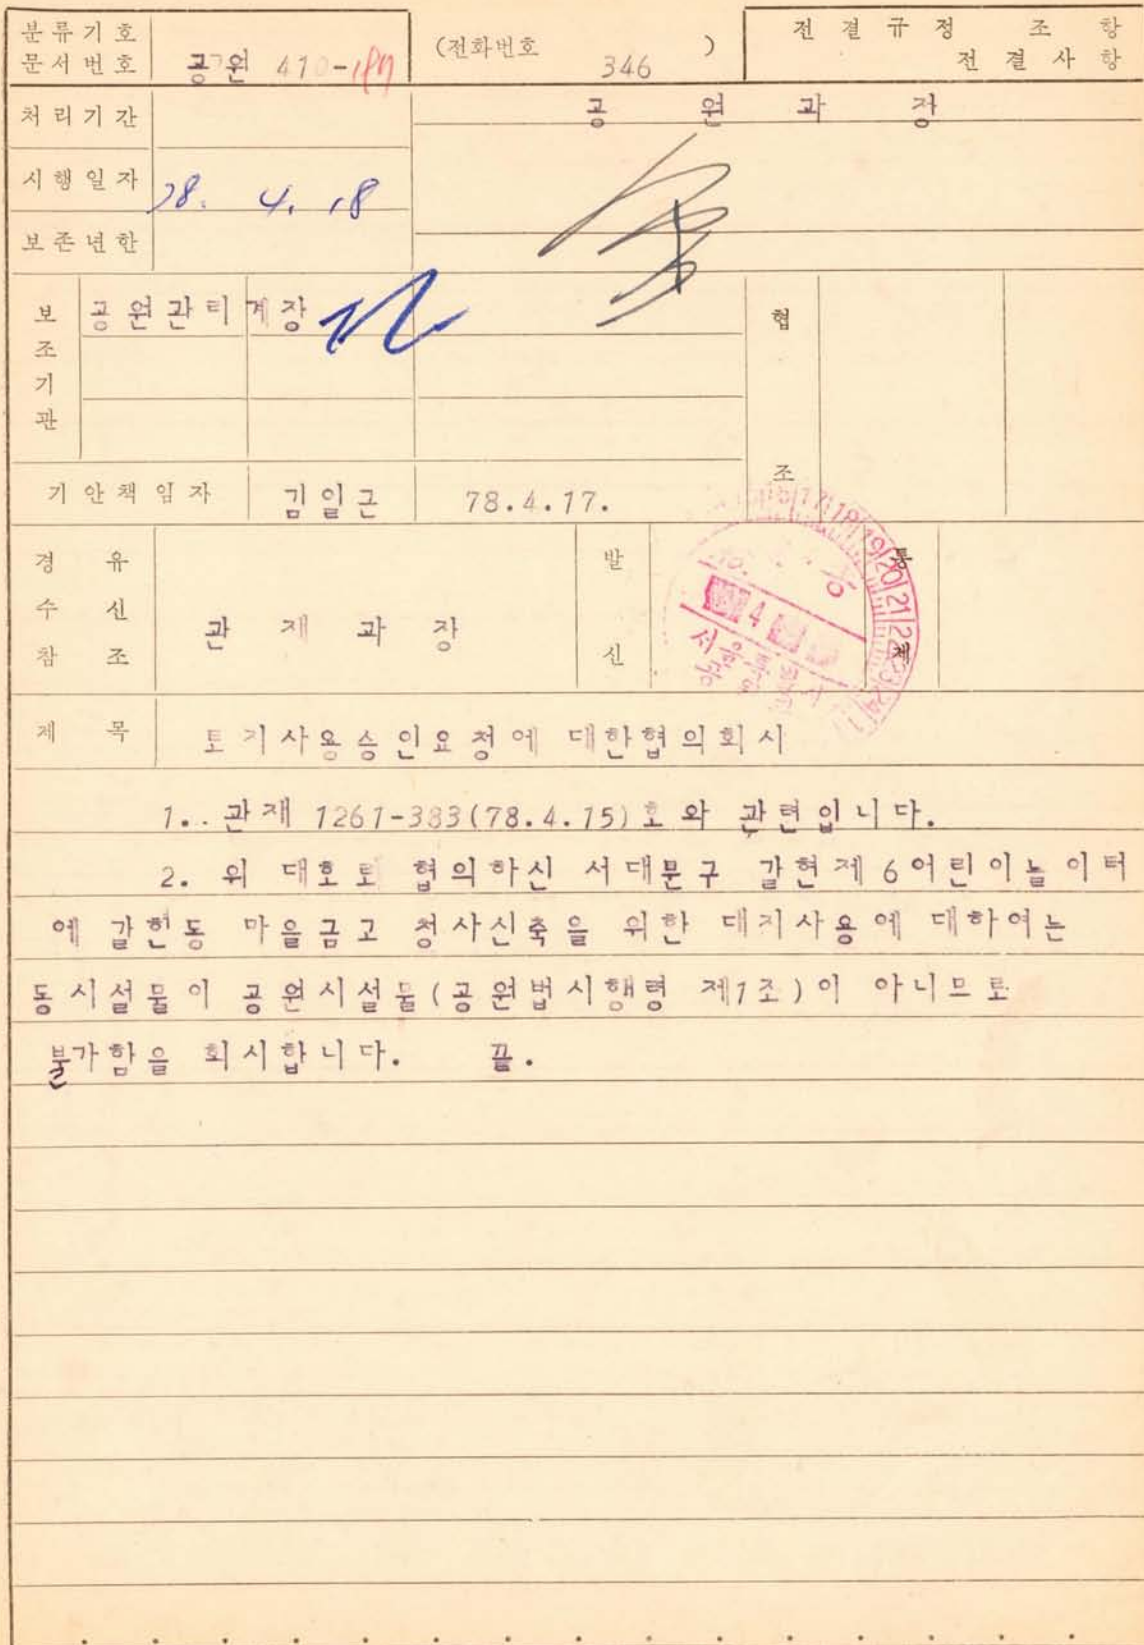 분류기호
문서번호 공원 410-
(전화번호 346 )
전결규정 조 항
전결사항
처리기간
공 원 과 장
시행일자 78. 4. 18
보존년한
보조기관 공원관리계장
협조
기안책임자 김일근 78.4.17.
경유
수신 관 재 과 장
참조
발신
통제
제목 토지사용승인요청에 대한협의회시
1.. 관재 1261-383(78.4.15)호와 관련입니다.
2. 위 대호로 협의하신 서대문구 갈현제6어린이놀이터
에 갈헌동 마을금고 청사신축을 위한 대지사용에 대하여는
동시설물이 공원시설물(공원법시행령 제1조)이 아니므로
불가함을 회시합니다. 끝.